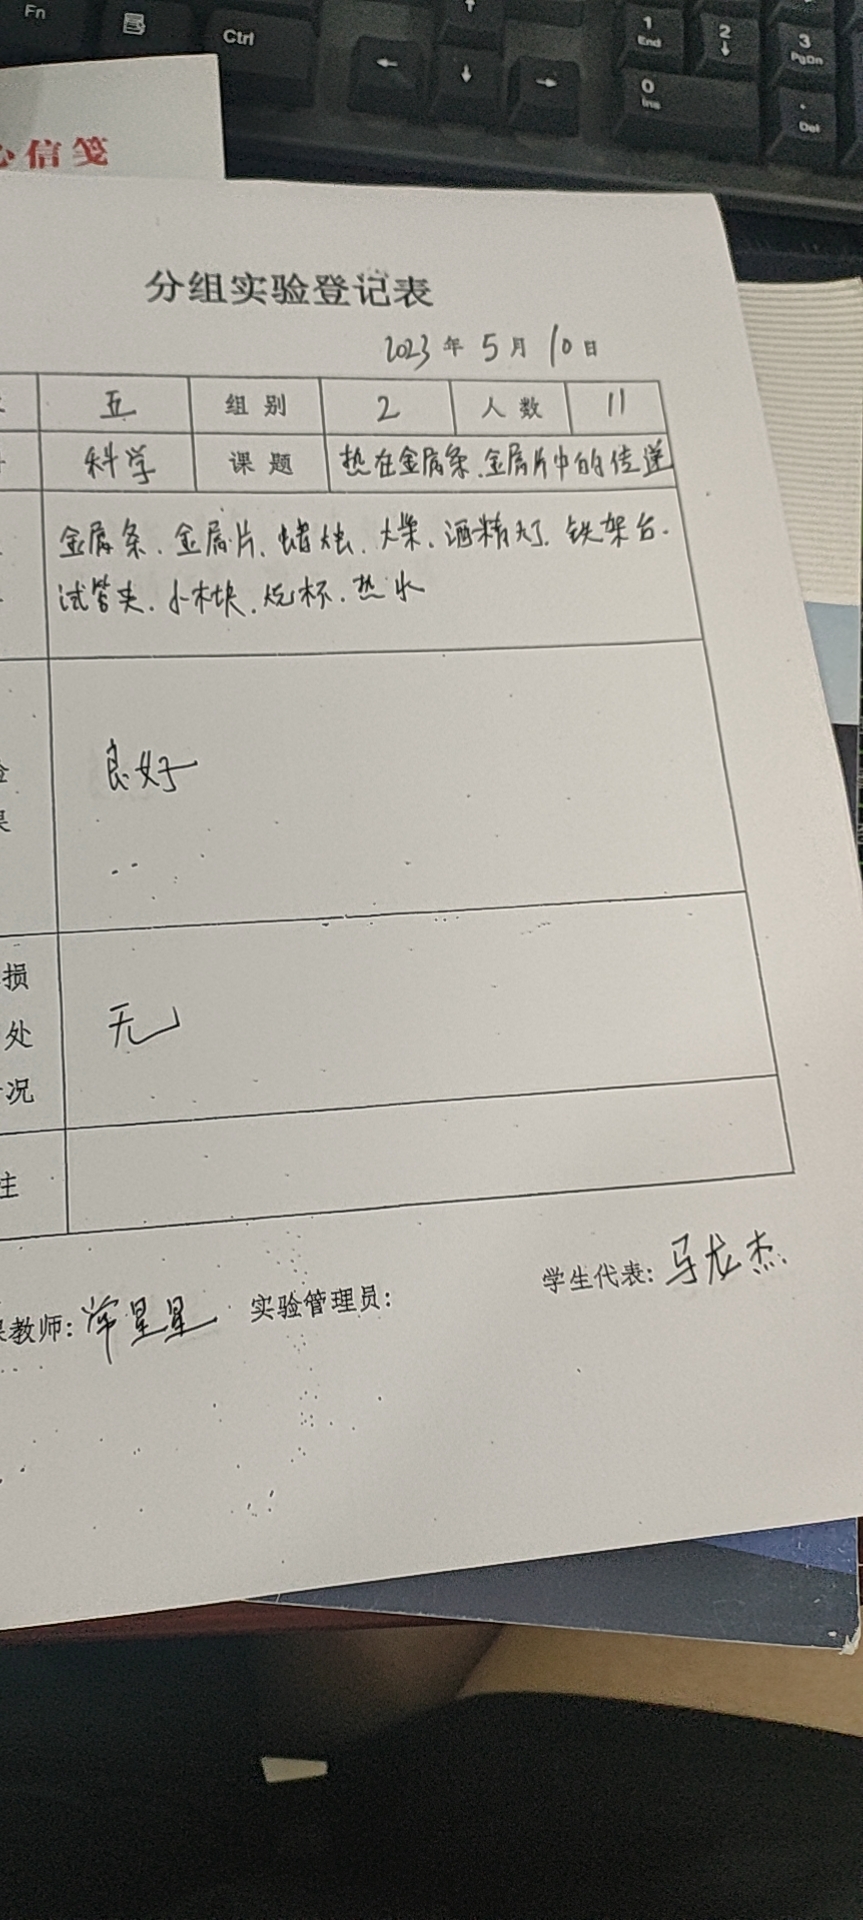 Fn
Ctrl
1
End
2
3
PgDn
0
Ins
.
Del
信笺
分组实验登记表
2023 年 5 月 10 日
五 组别 2 人数 11
科学 课题 热在金属条、金属片中的传递
金属条、金属片、蜡烛、火柴、酒精灯、铁架台.
试管夹、小木块、烧杯、热水
良好
损
处 无
况
注
教师: 星星 实验管理员: 学生代表: 马龙杰